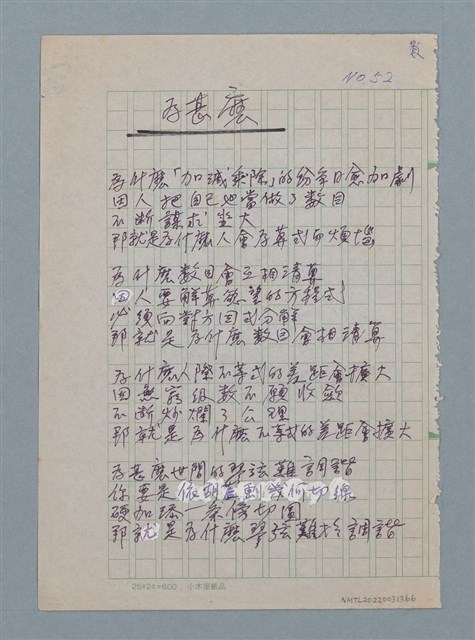 散
NO.52
為甚麼
為什麼「加減乘除」的紛爭日愈加劇
因人把自己也當做了数目
不斷謀求坐大
那就是為什麼人會為算式而煩惱
為什麼数目會互相清算
因人要解算慾望的方程式
必須向對方因式分解
那就是為什麼数目會相清算
為什麼人際不等式的差距會擴大
因無窮級数不願收歛
不斷炒爛了公理
那就是為什麼不等式的差距會擴大
為甚麼世間的琴弦難調諧
你要是依胡蘆劃幾何切線
硬加添一条傍切圓
那就是為什麼琴弦難於調諧
25×24=600 小木屋紙品
NMTL20220031366